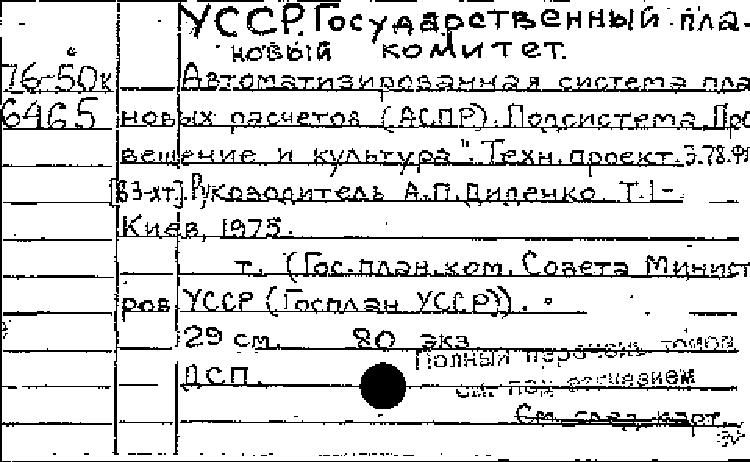 УССР. Государственный пла-
новый комитет.
76-50к Автоматизированная система пла
6465 новых расчетов (АСПР). Подсистема „Прос
вещение и культура". Техн. проект. 3.78.
[В 3-хт]. Руководитель А.П. Диденко. Т. 1-
Киев, 1975.
т. (Гос. план. ком. Совета Минист
ров УССР (Госплан УССР)).
29 см. 80 экз.
Полный перечень томов
ДСП.
см. под описанием
См. след. карт.